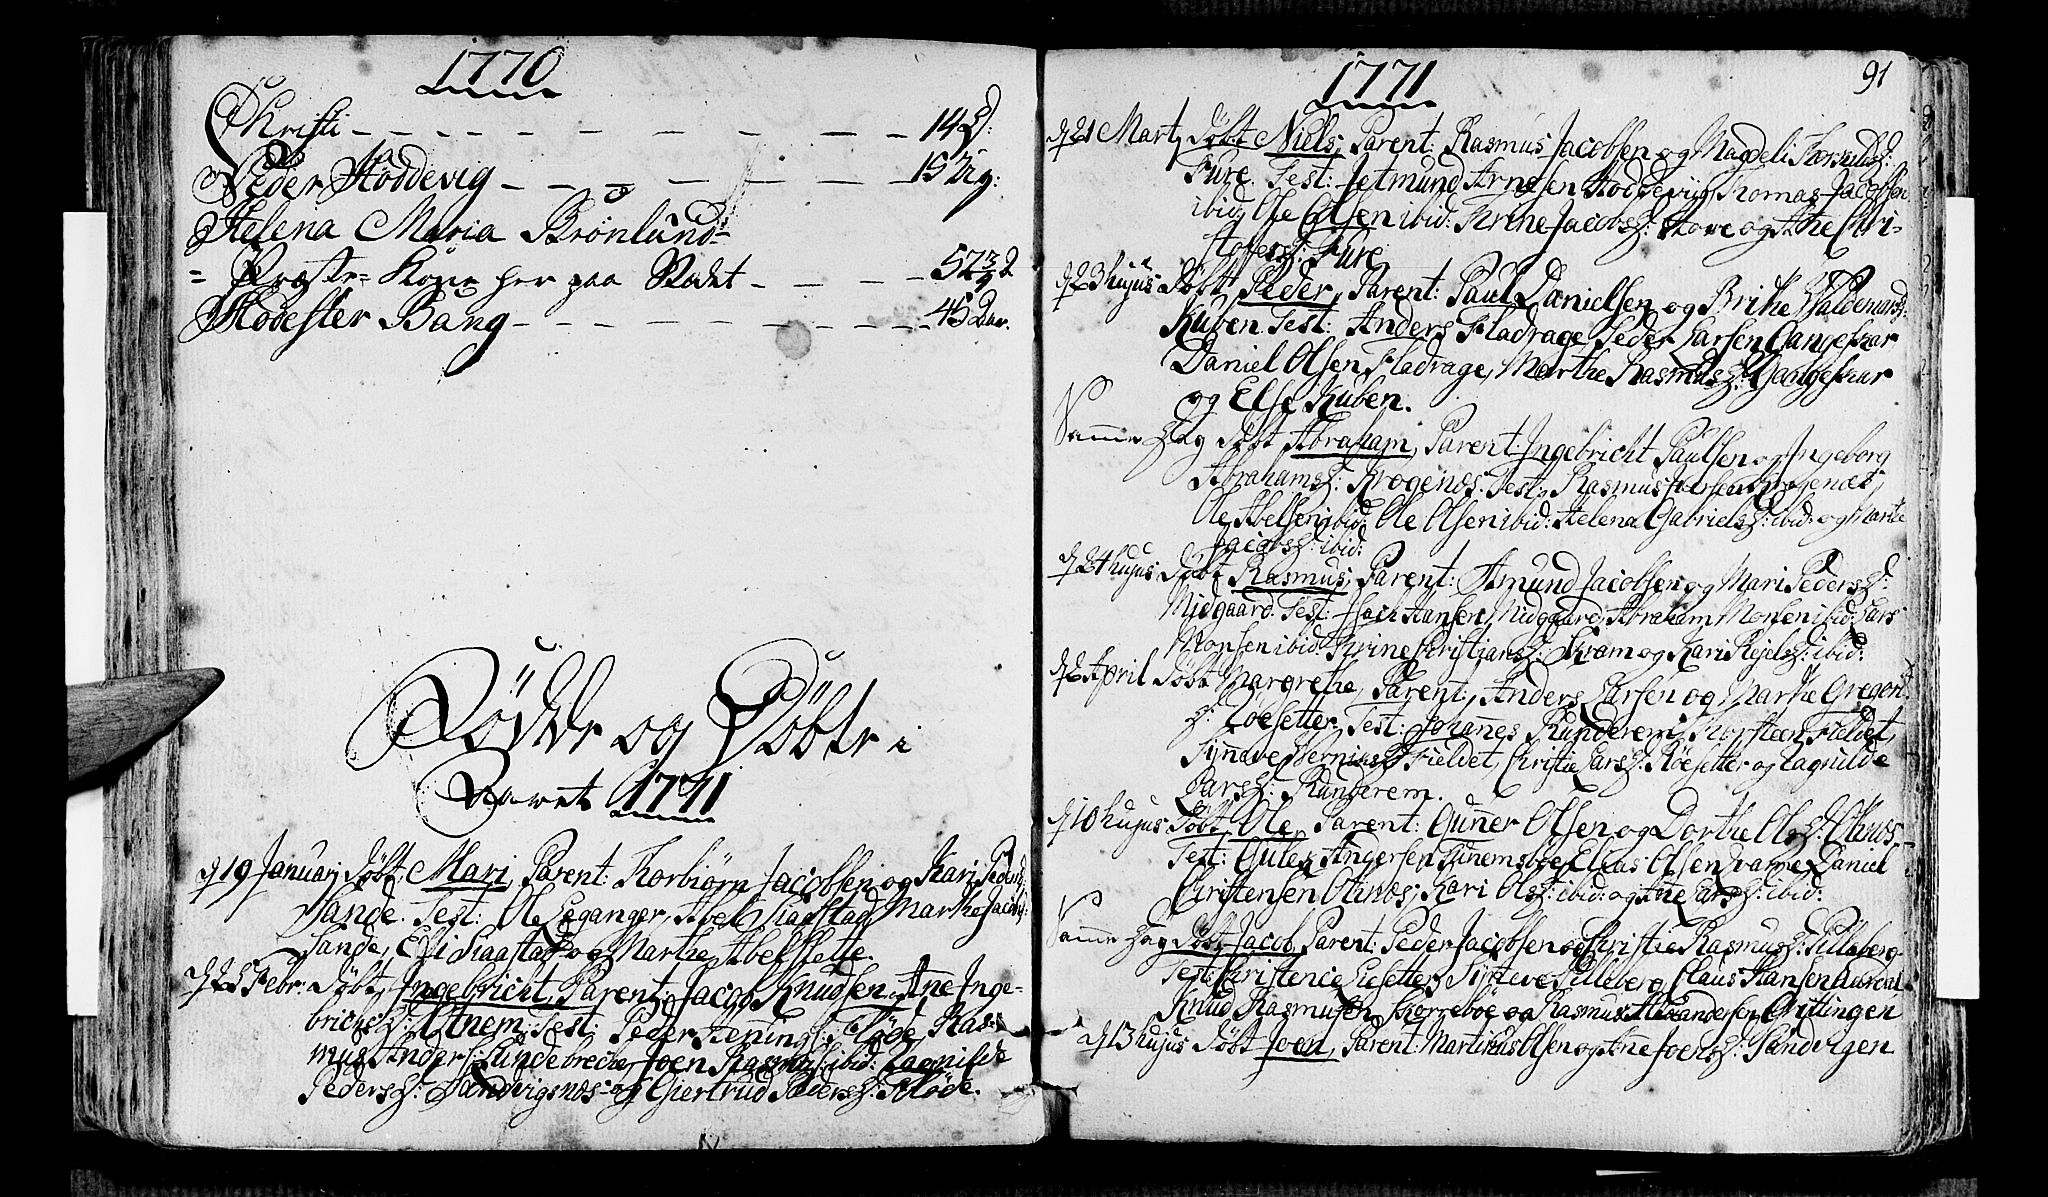 1770
Christi — — — — — — — — 14 D:
Peder Høddevig — — — — — — 15 Ug:
Helena Maria Brönlund
= Præste-Kone her paa Stædet — — — — 52 3/4 D
Modester Bang — — — — — — — 45 Aar.
Fødde og Døbte i
Aaret 1771
d 19 Januarj Døbt Mari, Parent: Torbiørn Jacobsen og Kari Peders:
Sande. Test: Ole Leganger, Abel Saastad, Marthe Jacobs:
Sande, Eli Saastad og Marthe Abelsette.
d 25 Febr: Døbt, Ingebricht, Parent: Jacob Knudsen og Ane Inge-
brichs: Utnem. Test: Peder Henings: Fløde Ras-
mus Anders: Lindebrecke, Joen Rasmus: ibid: Ragnilde
Peders: Sandvigsnæs og Giertrud Peders: Fløde.
1771
91
d 21 Martj Døbt Niels, Parent: Rasmus Jacobsen og Magdeli
Fure. Test: Jetmund Arnesen Hoddeviig Thomas Jacobsen
ibid, Ole Olsen ibid: Trine Jacobs: Hove og Ane Chri-
stophers: Fure.
d 23 hujus Døbt Peder, Parent: Paul Danielsen og Brithe Valdemars:
Kuben. Test: Anders Fladrage, Peder Larsen Gangeskar
Daniel Olsen Fladrage, Marthe Rasmus: Gangeskar
og Else Kuben.
Samme Dag Døbt Abraham, Parent: Ingebricht Paulsen og Ingeborg
Abrahams: Krogenæs. Test: Rasmus Krogenæs,
Ole Abelsen ibid, Ole Olsen ibid: Helena Gabriels: ibid: og Marite
Jacobs: ibid:
d 24 hujus Døbt Rasmus, Parent: Amund Jacobsen og Mari Peders:
Midgaard. Test: Hansen Midgaard, Abraham Monsen ibid: Lars
Monsen ibid: Trine Christians: Fram og Kari ibid:
d 2 April Døbt Margrethe, Parent: Anders Larsen og Marthe Gregori
Røesetter. Test: Johannes Runderem, Torsteen Fieldet,
Synave Fieldet, Christie Lars: Røesetter og Ragnilde
Lars: Runderem.
d 10 hujus Døbt Ole, Parent: Gunner Olsen og Dorthe Ols: Otnes.
Test: Gulez Angersen Elias Olsen Daniel
Christensen Otnes, Kari Ols: ibid: og Ane Lars: ibid:
Samme Dag Døbt Jacob, Parent: Peder Jacobsen og Christie Rasmus: Lilleberg.
Test: Christence Lilleberg, Claus Hansen
Knud Rasmusen Torreboe og Rasmus Alexandersen Grittingen
d 13 hujus Døbt Joen, Parent: Martinus Olsen og Anne Joens: Sandvigen